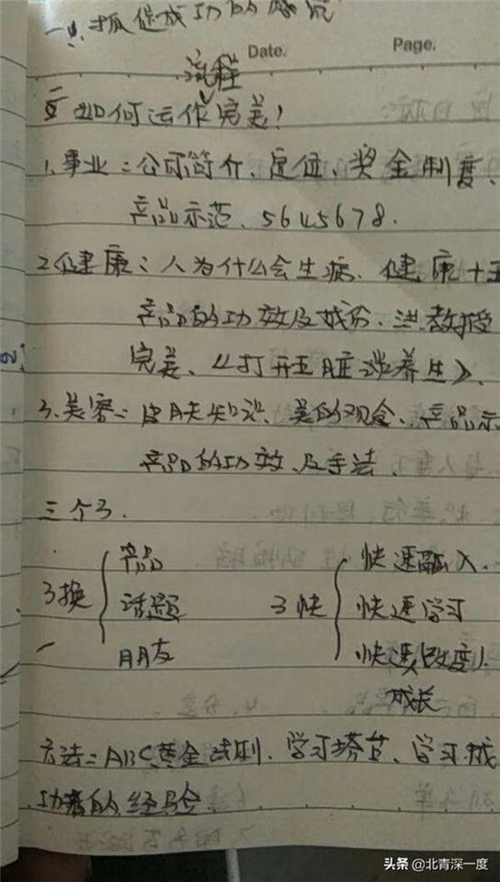 一.抓住成功的
Date. Page.
流程
如何运作完美!
1.事业:公司简介、定位、奖金制度、
产品示范、5645678.
2健康:人为什么会生病.健康十五
产品的功效及成份.洪教授
完美、《打开五脏谈养生》.
3.美容:皮肤知识、美的观念、产品示
产品的功效、及手法、
三个3.
3换 产品 话题 朋友
3快 快速融入. 快速学习 快速改变、成长
方法:ABC黄金法则、学习
学习成
功者的经验
头条 @北青深一度